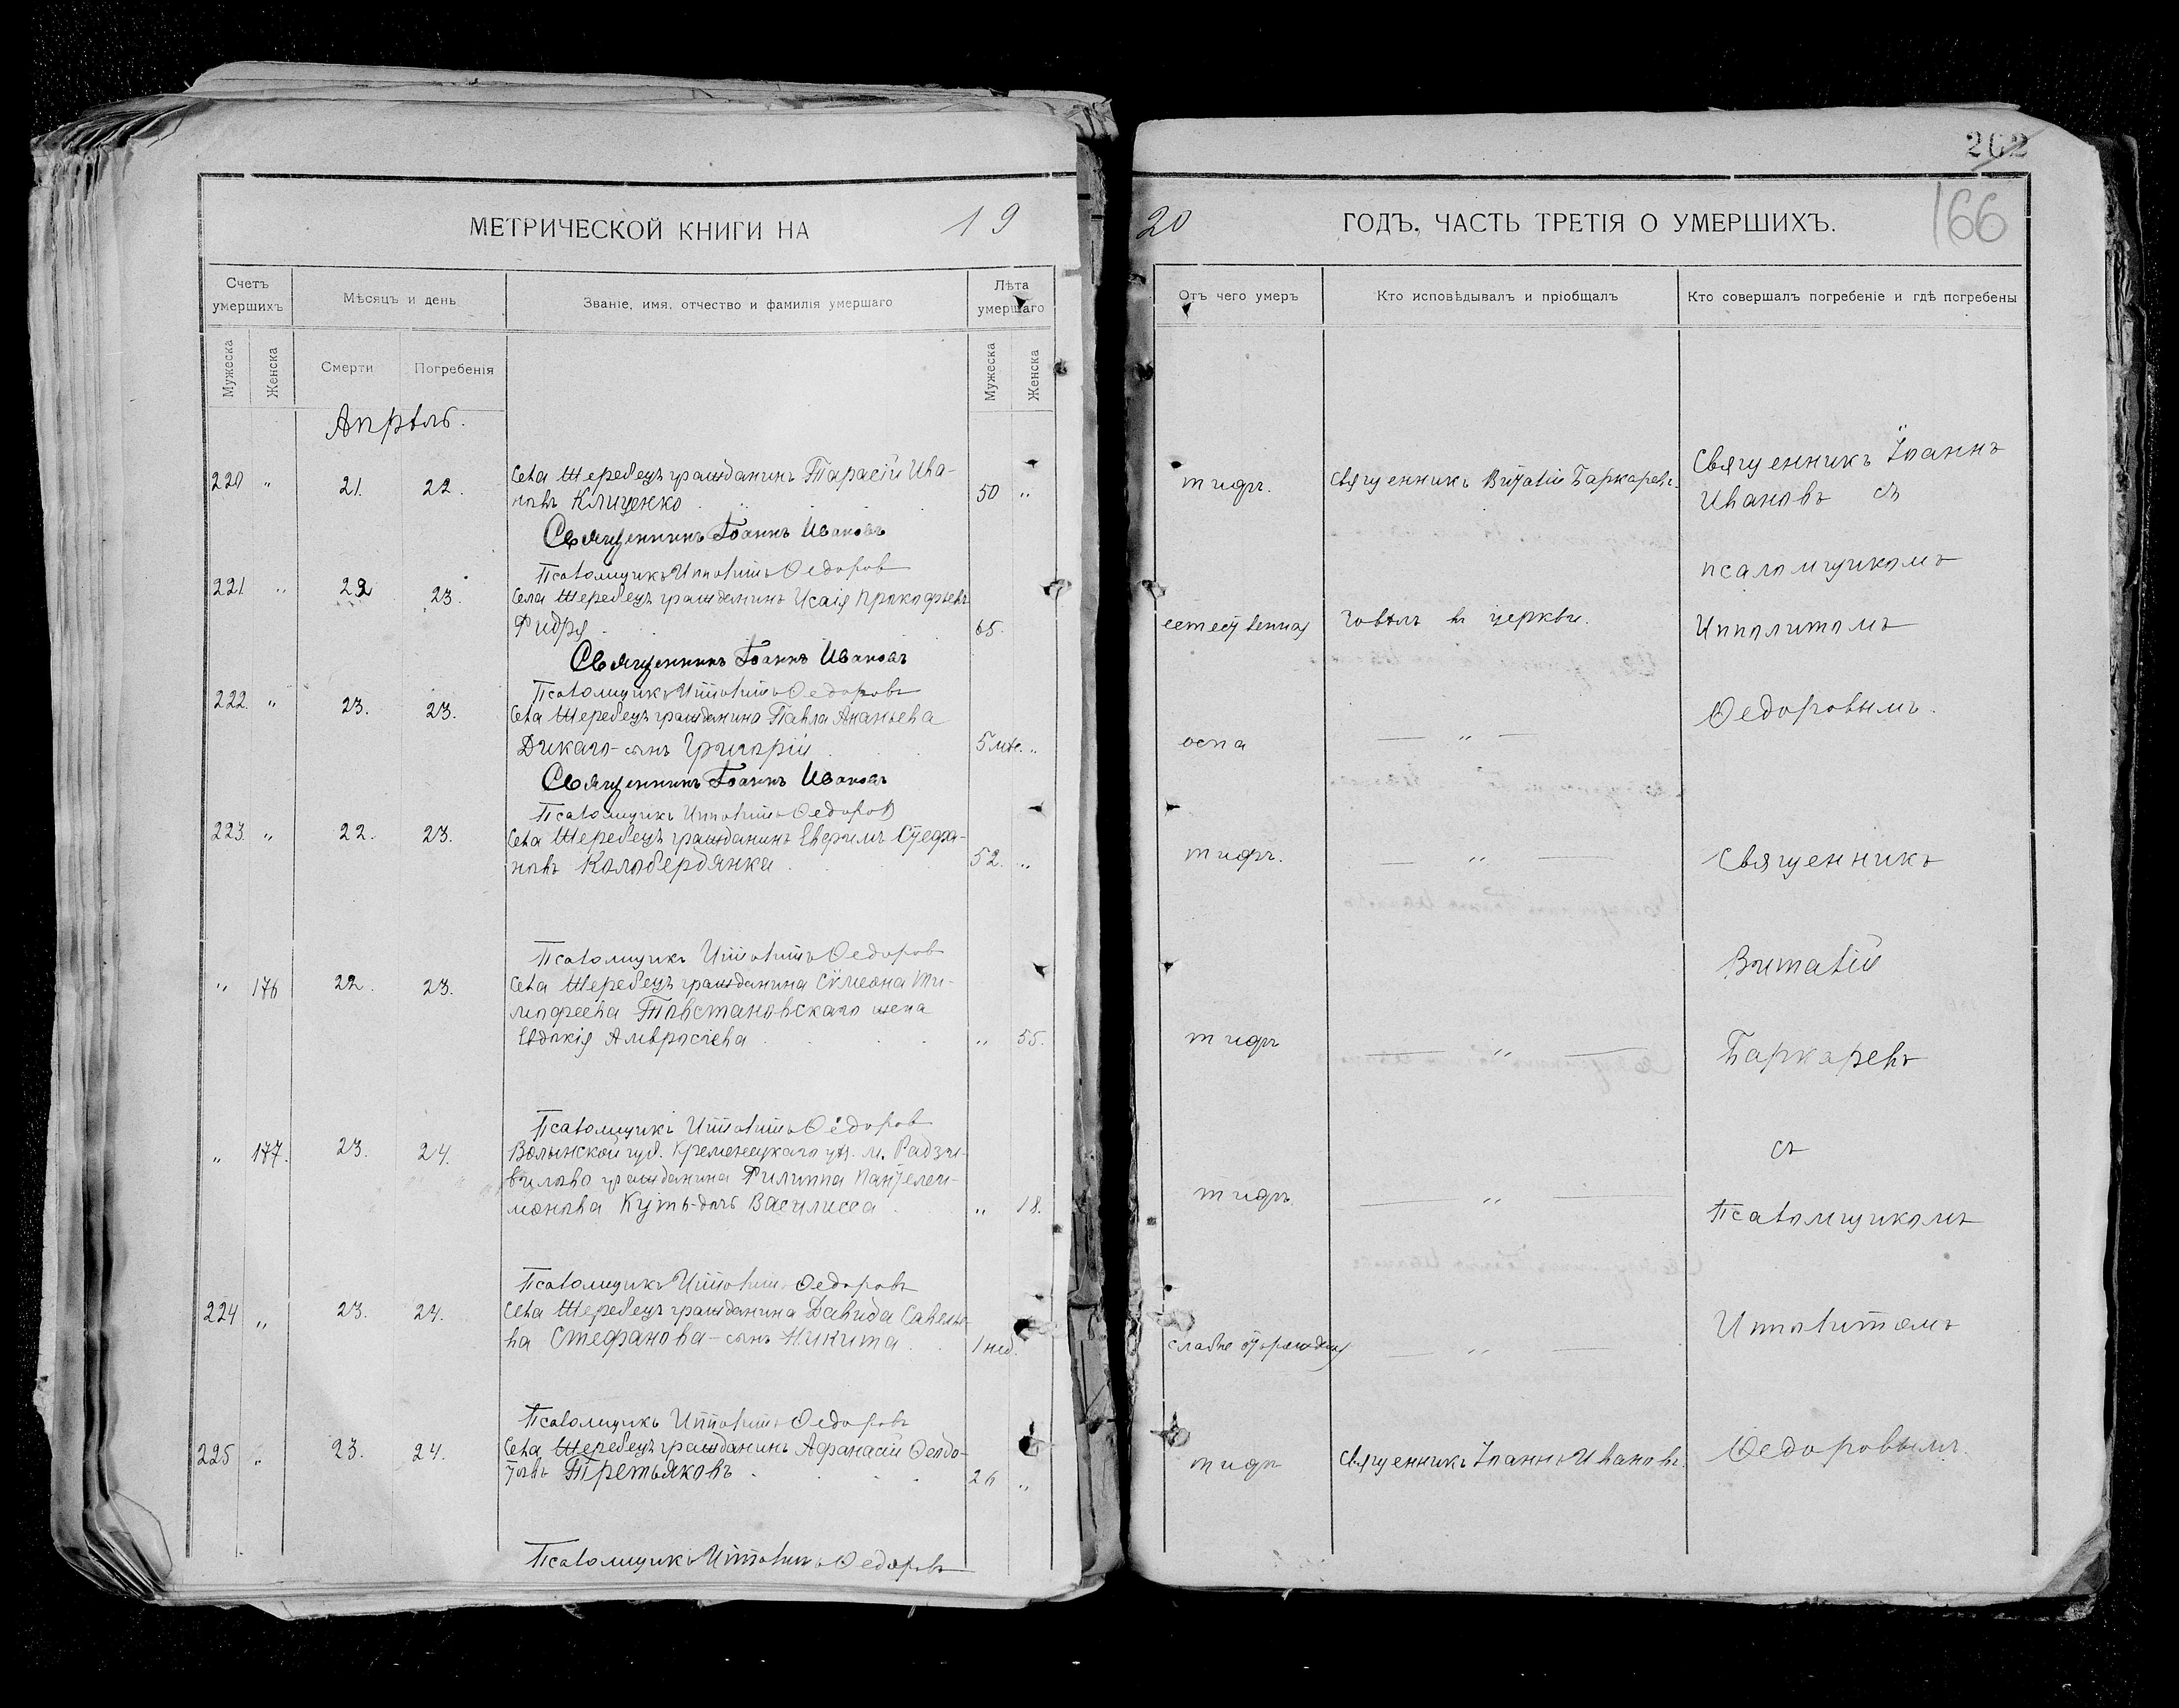 262
166
МЕТРИЧЕСКОЙ КНИГИ НА 19
20 ГОДЪ, ЧАСТЬ ТРЕТІЯ О УМЕРШИХЪ.
Счетъ умершихъ
Мѣсяцъ и день
Званіе, имя, отчество и фамилія умершаго
Лѣта умершаго
Отъ чего умеръ
Кто исповѣдывалъ и пріобщалъ
Кто совершалъ погребеніе и гдѣ погребены
Мужеска
Женска
Смерти
Погребенія
Мужеска
Женска
Апрѣль.
220 " 21. 22.
Села Жеребецъ гражданинъ Тарасій Ива-
новъ Клищенко 50 "
тифъ.
Священникъ Виталій Баркаревъ.
Священникъ Іоаннъ
Ивановъ съ
Священникъ Іоаннъ Ивановъ
Псаломщикъ Ипполитъ Ѳедоровъ
псаломщикомъ
221 " 22 23.
Села Жеребецъ гражданинъ Исаія Прокофьевъ
Фидря 65.
естественная
Говѣлъ въ церкви.
Ипполитомъ
Священникъ Іоаннъ Ивановъ
Псаломщикъ Ипполитъ Ѳедоровъ
Ѳедоровымъ.
222. " 23. 23.
Села Жеребецъ гражданина Павла Ананьева
Дикаго-сынъ Григорій 5 мѣс. "
оспа
— " —
Священникъ Іоаннъ Ивановъ
Псаломщикъ Ипполитъ Ѳедоровъ
223. " 22. 23.
Села Жеребецъ гражданинъ Евфимъ Стефа-
новъ Колобердянка 52. "
тифъ.
— " —
Священникъ
Псаломщикъ Ипполитъ Ѳедоровъ
Виталій
" 176 22. 23.
Села Жеребецъ гражданина Сѵмеона Ти-
мофеева Товстановскаго жена
Евдокія Амвросіева " 55.
тифъ
— " —
Баркаревъ
Псаломщикъ Ипполитъ Ѳедоровъ
съ
" 177. 23. 24.
Волынской губ. Кременецкаго уѣз. м. Радзи-
вилово гражданина Филиппа Пантелеи-
монова Куть-дочь Василисса " 18.
тифъ.
— " —
Псаломщикомъ
Псаломщикъ Ипполитъ Ѳедоровъ
224 " 23. 24.
Села Жеребецъ гражданина Давида Савелье-
ва Стефанова-сынъ Никита 1 нед.
— " —
Ипполитомъ
Псаломщикъ Ипполитъ Ѳедоровъ
225 " 23. 24.
Села Жеребецъ гражданинъ Афанасій Ѳедо-
товъ Третьяковъ 26 "
тифъ
Священникъ Іоаннъ Ивановъ.
Ѳедоровымъ.
Псаломщикъ Ипполитъ Ѳедоровъ